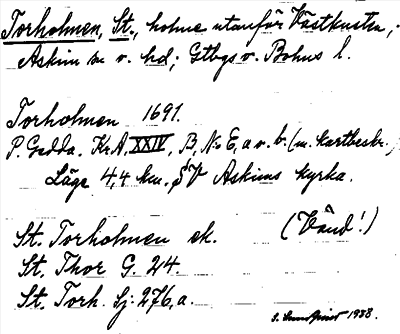 Torholmen, St., holme utanför Västkusten,
Askim sn v. hd; Gtbgs o. Bohus l.
Torholmen 1691.
P. Gedda. Kr.A. XXIV, B, No: 6, a o. b. (m. kartbeskr.)
Läge 4,4 km. SV Askims kyrka.
St. Torholmen ek. (Vänd!)
St. Thor G. 24.
St. Torh. Sj. 276, a.
1938.